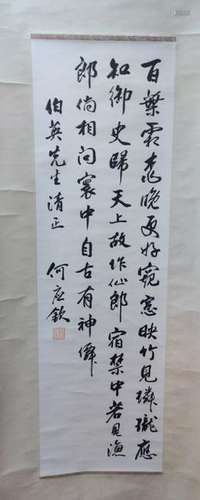 百葉霜桃晚更好窺窓映竹見璘瓏應
知御史歸天上故作仙郎宿禁中若見漁
郎倘相问寰中自古有神僊
伯英先生清正
何应欽